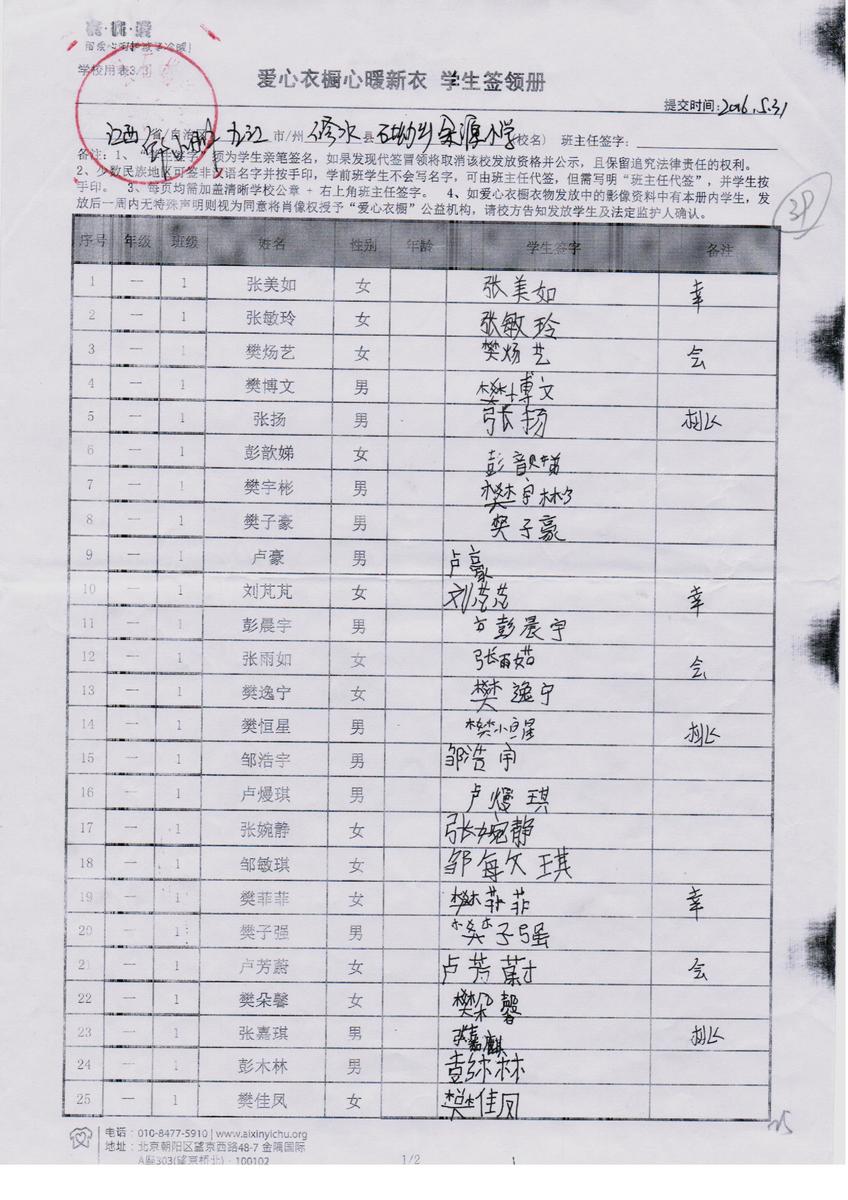 衣·优·爱
学校用表3/3
爱心衣橱心暖新衣 学生签领册
提交时间:2016.5.31
江西 省/自治区 九江 市/州 修水 县 (校名) 班主任签字:
备注:1、 学生签字 须为学生亲笔签名,如果发现代签冒领将取消该校发放资格并公示,且保留追究法律责任的权利。
2、少数民族地区可签非汉语名字并按手印,学前班学生不会写名字,可由班主任代签,但需写明“班主任代签”,并学生按
手印。 3、每页均需加盖清晰学校公章 + 右上角班主任签字。 4、如爱心衣橱衣物发放中的影像资料中有本册内学生,发
放后一周内无特殊声明则视为同意将肖像权授予“爱心衣橱”公益机构,请校方告知发放学生及法定监护人确认。
序号 年级 班级 姓名 性别 年龄 学生签字 备注
1 一 1 张美如 女 张美如 幸
2 一 1 张敏玲 女 张敏玲
3 一 1 樊炀艺 女 樊炀艺 会
4 一 1 樊博文 男 樊博文
5 一 1 张扬 男 张扬
6 一 1 彭歆娣 女 彭歆娣
7 一 1 樊宇彬 男 樊宇彬
8 一 1 樊子豪 男 樊子豪
9 一 1 卢豪 男 卢豪
10 一 1 刘芃芃 女 刘芃芃 幸
11 一 1 彭晨宇 男 彭晨宇
12 一 1 张雨如 女 张雨茹 会
13 一 1 樊逸宁 女 樊逸宁
14 一 1 樊恒星 男 樊恒星
15 一 1 邹浩宇 男 邹浩宇
16 一 1 卢熳琪 男 卢熳琪
17 一 1 张婉静 女 张婉静
18 一 1 邹敏琪 女 邹敏琪
19 一 1 樊菲菲 女 樊菲菲 幸
20 一 1 樊子强 男 樊子强
21 一 1 卢芳蔚 女 卢芳蔚 会
22 一 1 樊朵馨 女 樊朵馨
23 一 1 张嘉琪 男 张嘉麒
24 一 1 彭木林 男 彭木林
25 一 1 樊佳凤 女 樊佳凤
电话:010-8477-5910 | www.aixinyichu.org
地址:北京朝阳区望京西路48-7 金隅国际
A座303(望京桥北)·100102
1/2